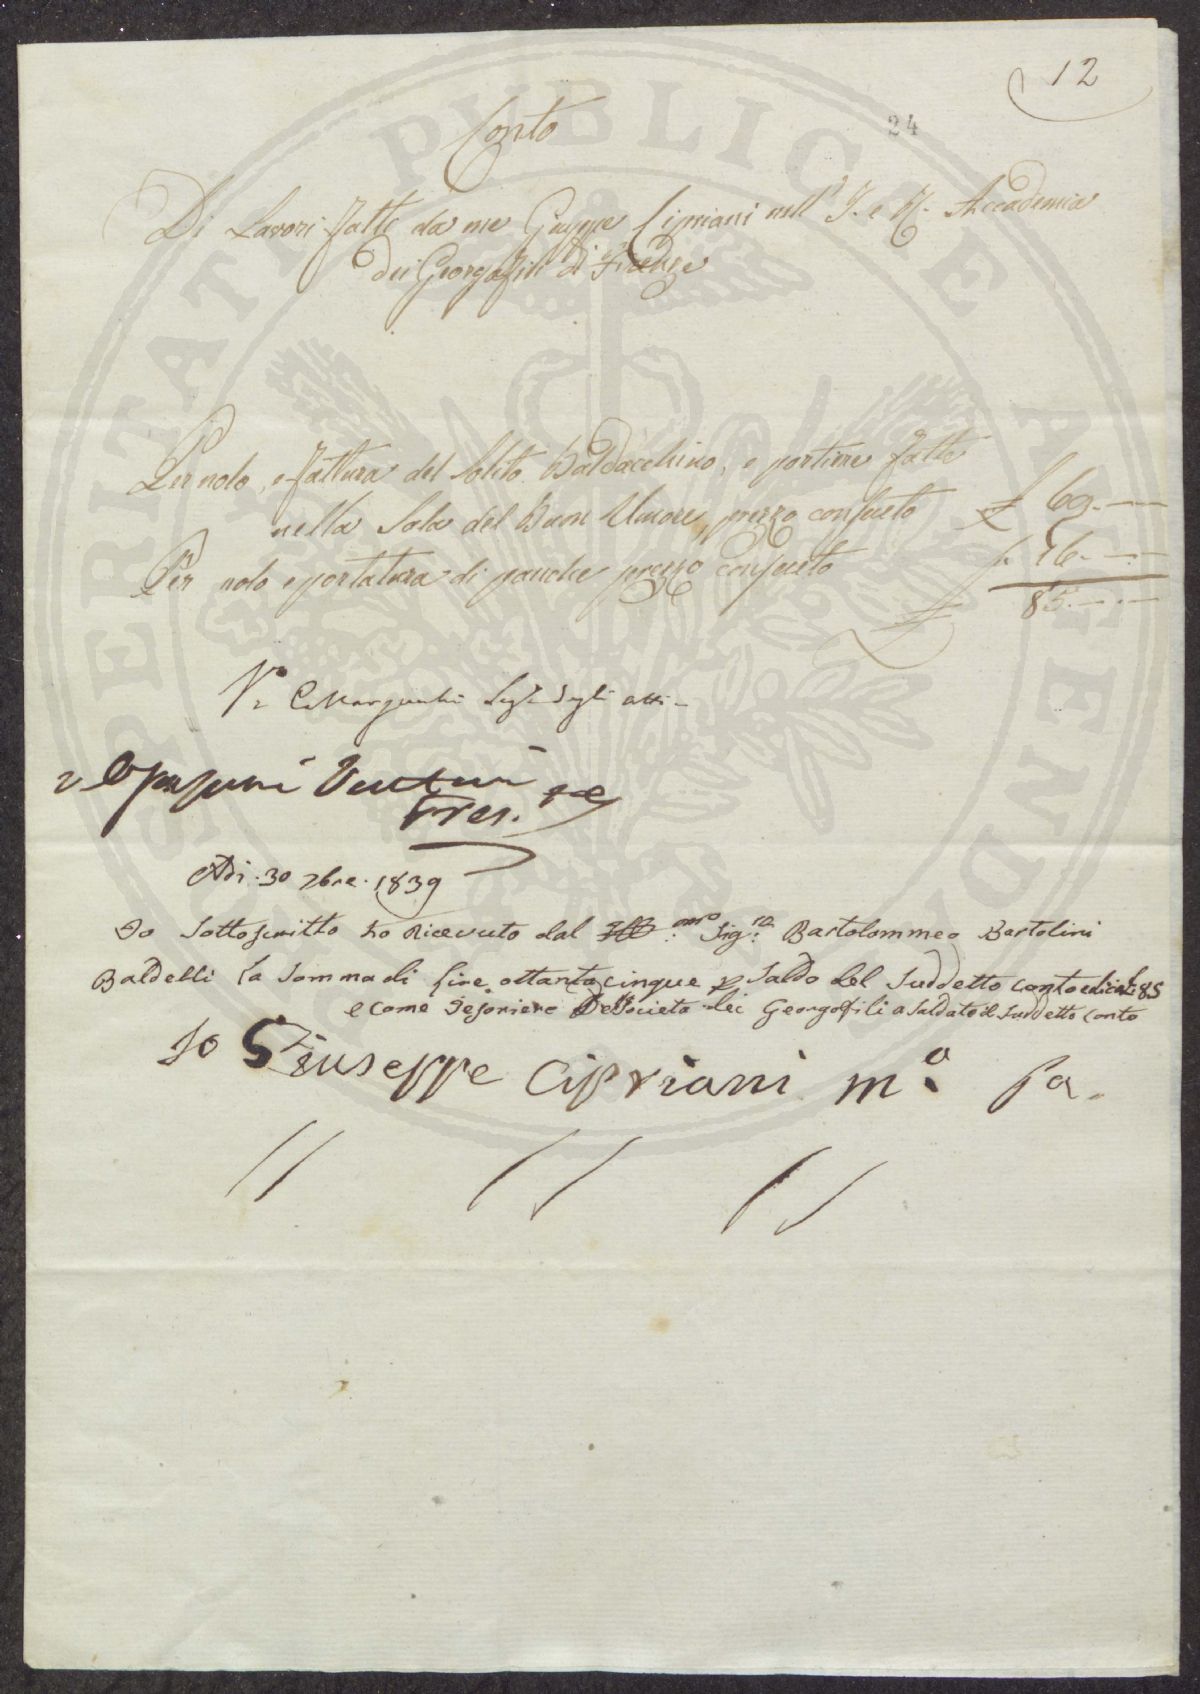 12
24
Conto
Di Lavori fatti da me Giuseppe Cipriani nell' I. e R. Accademia
dei Georgofili di Firenze
Per nolo, e fattura del solito Baldacchino, e portiere fatte
nella Sala del Buon Umore, prezzo consueto £ 69.—
Per nolo e portatura di panche prezzo consueto £ 16.—
£ 85.—
Vo. segli atti
Pres.
Adi. 30 xbre. 1839
Io Sottoscritto ho Ricevuto dal Sig.re Bartolommeo Bartolini
Baldelli la somma di Lire ottanta cinque p Saldo del Suddetto conto L 85
e come Tesoriere Della Societa dei Georgofili a Saldato il Suddetto Conto
Io Giuseppe Cipriani m.o pa.
PROSPERITATI PUBLICAE AUGENDAE